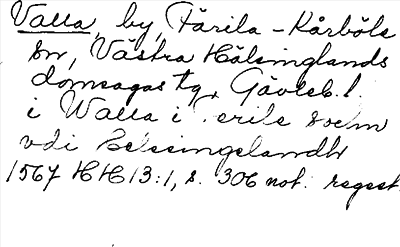 Valla, by, Färila - Kårböle
sn, Västra Hälsinglands
domsagas tg, Gävleb. l.
i Walla i Ferile sochn
vdi Helssingelandh
1567 HH 13:1, s. 306 not. regest.